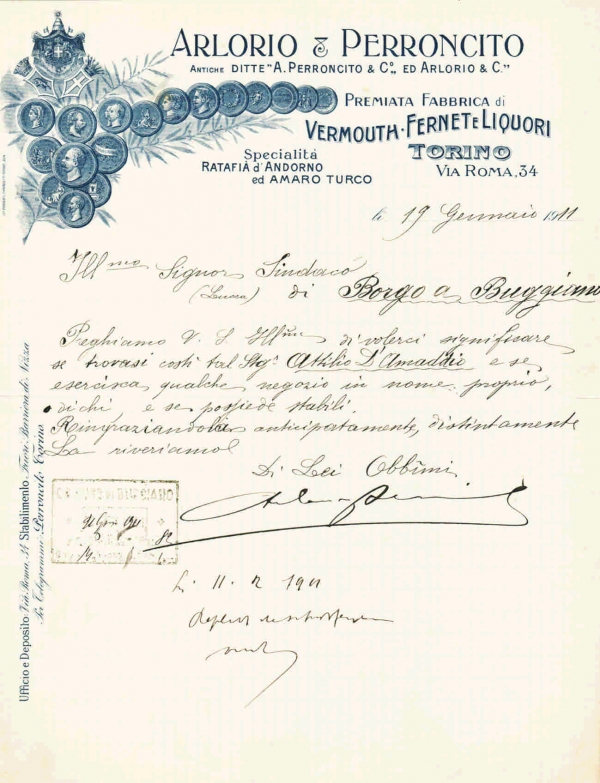 ARLORIO & PERRONCITO
ANTICHE DITTE "A. PERRONCITO & Cº. ED ARLORIO & C."
PREMIATA FABBRICA di
VERMOUTH-FERNET E LIQUORI
TORINO
VIA ROMA, 34
Specialità
RATAFIÀ d'ANDORNO
ed AMARO TURCO
li 19 Gennaio 1911
Ill.mo Signor Sindaco
(Lucca) di Borgo a Buggiano
Preghiamo V. S. Ill.ma di volerci significare
se trovasi costì tal Sig. Attilio D'Amaddio e se
esercisca qualche negozio in nome proprio,
di chi e se possiede stabili.
Ringraziandola anticipatamente, distintamente
La riveriamo
Di Lei Obb.mi
11 2 1911
Ufficio e Deposito Via Roma, 34 Stabilimento Fuori Barriera di Nizza
Per Telegrammi: Perroncito Torino